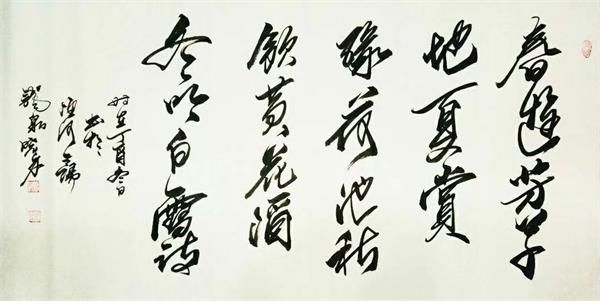 春遊芳草
地夏賞
綠荷池秋
飲黃花酒
冬吟白雪詩
时在丁酉冬日
书於